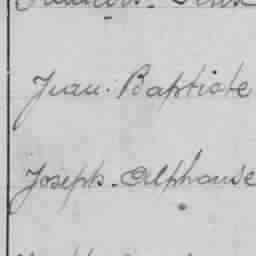 Jean. Baptiste
Joseph. Alphonse